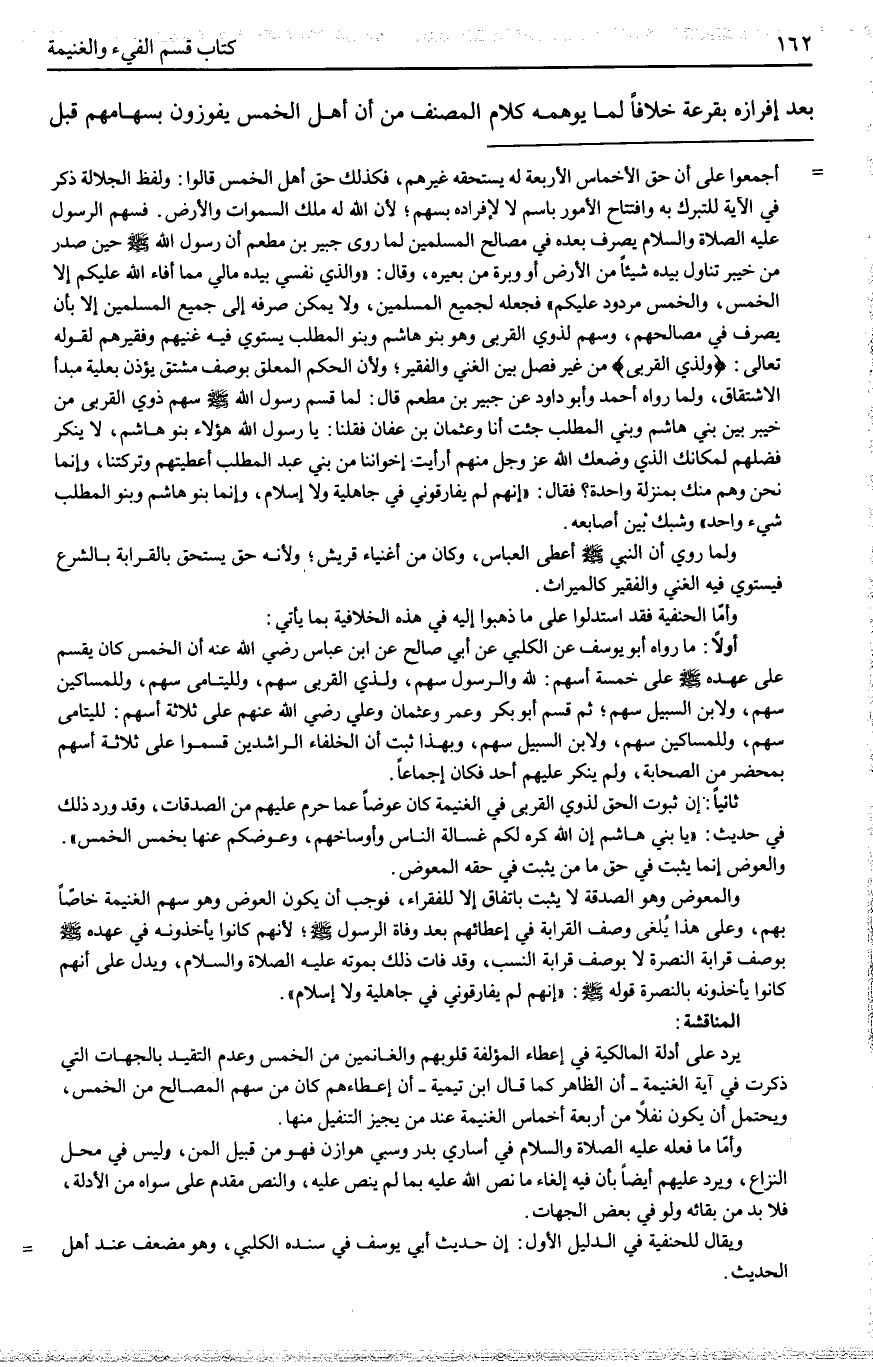 ١٦٢
كتاب قسم الفيء والغنيمة
بعد إفرازه بقرعة خلافاً لما يوهمه كلام المصنف من أن أهل الخمس يفوزون بسهامهم قبل
= أجمعوا على أن حق الأخماس الأربعة له يستحقه غيرهم، فكذلك حق أهل الخمس قالوا: ولفظ الجلالة ذكر
في الآية للتبرك به وافتتاح الأمور باسم لا لإفراده بسهم؛ لأن الله له ملك السموات والأرض. فسهم الرسول
عليه الصلاة والسلام يصرف بعده في مصالح المسلمين لما روى جبير بن مطعم أن رسول الله ﷺ حين صدر
من خيبر تناول بيده شيئاً من الأرض أو وبرة من بعيره، وقال: «والذي نفسي بيده مالي مما أفاء الله عليكم إلا
الخمس، والخمس مردود عليكم» فجعله لجميع المسلمين، ولا يمكن صرفه إلى جميع المسلمين إلا بأن
يصرف في مصالحهم، وسهم لذوي القربى وهو بنو هاشم وبنو المطلب يستوي فيه غنيهم وفقيرهم لقوله
تعالى: ﴿ولذي القربى﴾ من غير فصل بين الغني والفقير؛ ولأن الحكم المعلق بوصف مشتق يؤذن بعلية مبدأ
الاشتقاق، ولما رواه أحمد وأبو داود عن جبير بن مطعم قال: لما قسم رسول الله ﷺ سهم ذوي القربى من
خيبر بين بني هاشم وبني المطلب جئت أنا وعثمان بن عفان فقلنا: يا رسول الله هؤلاء بنو هاشم، لا ينكر
فضلهم لمكانك الذي وضعك الله عز وجل منهم أرأيت إخواننا من بني عبد المطلب أعطيتهم وتركتنا، وإنما
نحن وهم منك بمنزلة واحدة؟ فقال: «إنهم لم يفارقوني في جاهلية ولا إسلام، وإنما بنو هاشم وبنو المطلب
شيء واحد» وشبك بين أصابعه.
ولما روي أن النبي ﷺ أعطى العباس، وكان من أغنياء قريش؛ ولأنه حق يستحق بالقرابة بالشرع
فيستوي فيه الغني والفقير كالميراث.
وأمّا الحنفية فقد استدلوا على ما ذهبوا إليه في هذه الخلافية بما يأتي:
أولاً: ما رواه أبو يوسف عن الكلبي عن أبي صالح عن ابن عباس رضي الله عنه أن الخمس كان يقسم
على عهده ﷺ على خمسة أسهم: لله والرسول سهم، ولذي القربى سهم، ولليتامى سهم، وللمساكين
سهم، ولابن السبيل سهم؛ ثم قسم أبو بكر وعمر وعثمان وعلي رضي الله عنهم على ثلاثة أسهم: لليتامى
سهم، وللمساكين سهم، ولابن السبيل سهم، وبهذا ثبت أن الخلفاء الراشدين قسموا على ثلاثة أسهم
بمحضر من الصحابة، ولم ينكر عليهم أحد فكان إجماعاً.
ثانياً: إن ثبوت الحق لذوي القربى في الغنيمة كان عوضاً عما حرم عليهم من الصدقات، وقد ورد ذلك
في حديث: «يا بني هاشم إن الله كره لكم غسالة الناس وأوساخهم، وعوضكم عنها بخمس الخمس».
والعوض إنما يثبت في حق ما من يثبت في حقه المعوض.
والمعوض وهو الصدقة لا يثبت باتفاق إلا للفقراء، فوجب أن يكون العوض وهو سهم الغنيمة خاصّاً
بهم، وعلى هذا يُلغى وصف القرابة في إعطائهم بعد وفاة الرسول ﷺ؛ لأنهم كانوا يأخذونه في عهده ﷺ
بوصف قرابة النصرة لا بوصف قرابة النسب، وقد فات ذلك بموته عليه الصلاة والسلام، ويدل على أنهم
كانوا يأخذونه بالنصرة قوله ﷺ: «إنهم لم يفارقوني في جاهلية ولا إسلام».
المناقشة:
يرد على أدلة المالكية في إعطاء المؤلفة قلوبهم والغانمين من الخمس وعدم التقيد بالجهات التي
ذكرت في آية الغنيمة ـ أن الظاهر كما قال ابن تيمية ـ أن إعطاءهم كان من سهم المصالح من الخمس،
ويحتمل أن يكون نفلاً من أربعة أخماس الغنيمة عند من يجيز التنفيل منها.
وأمّا ما فعله عليه الصلاة والسلام في أساري بدر وسبي هوازن فهو من قبيل المن، وليس في محل
النزاع، ويرد عليهم أيضاً بأن فيه إلغاء ما نص الله عليه بما لم ينص عليه، والنص مقدم على سواه من الأدلة،
فلا بد من بقائه ولو في بعض الجهات.
ويقال للحنفية في الدليل الأول: إن حديث أبي يوسف في سنده الكلبي، وهو مضعف عند أهل =
الحديث.